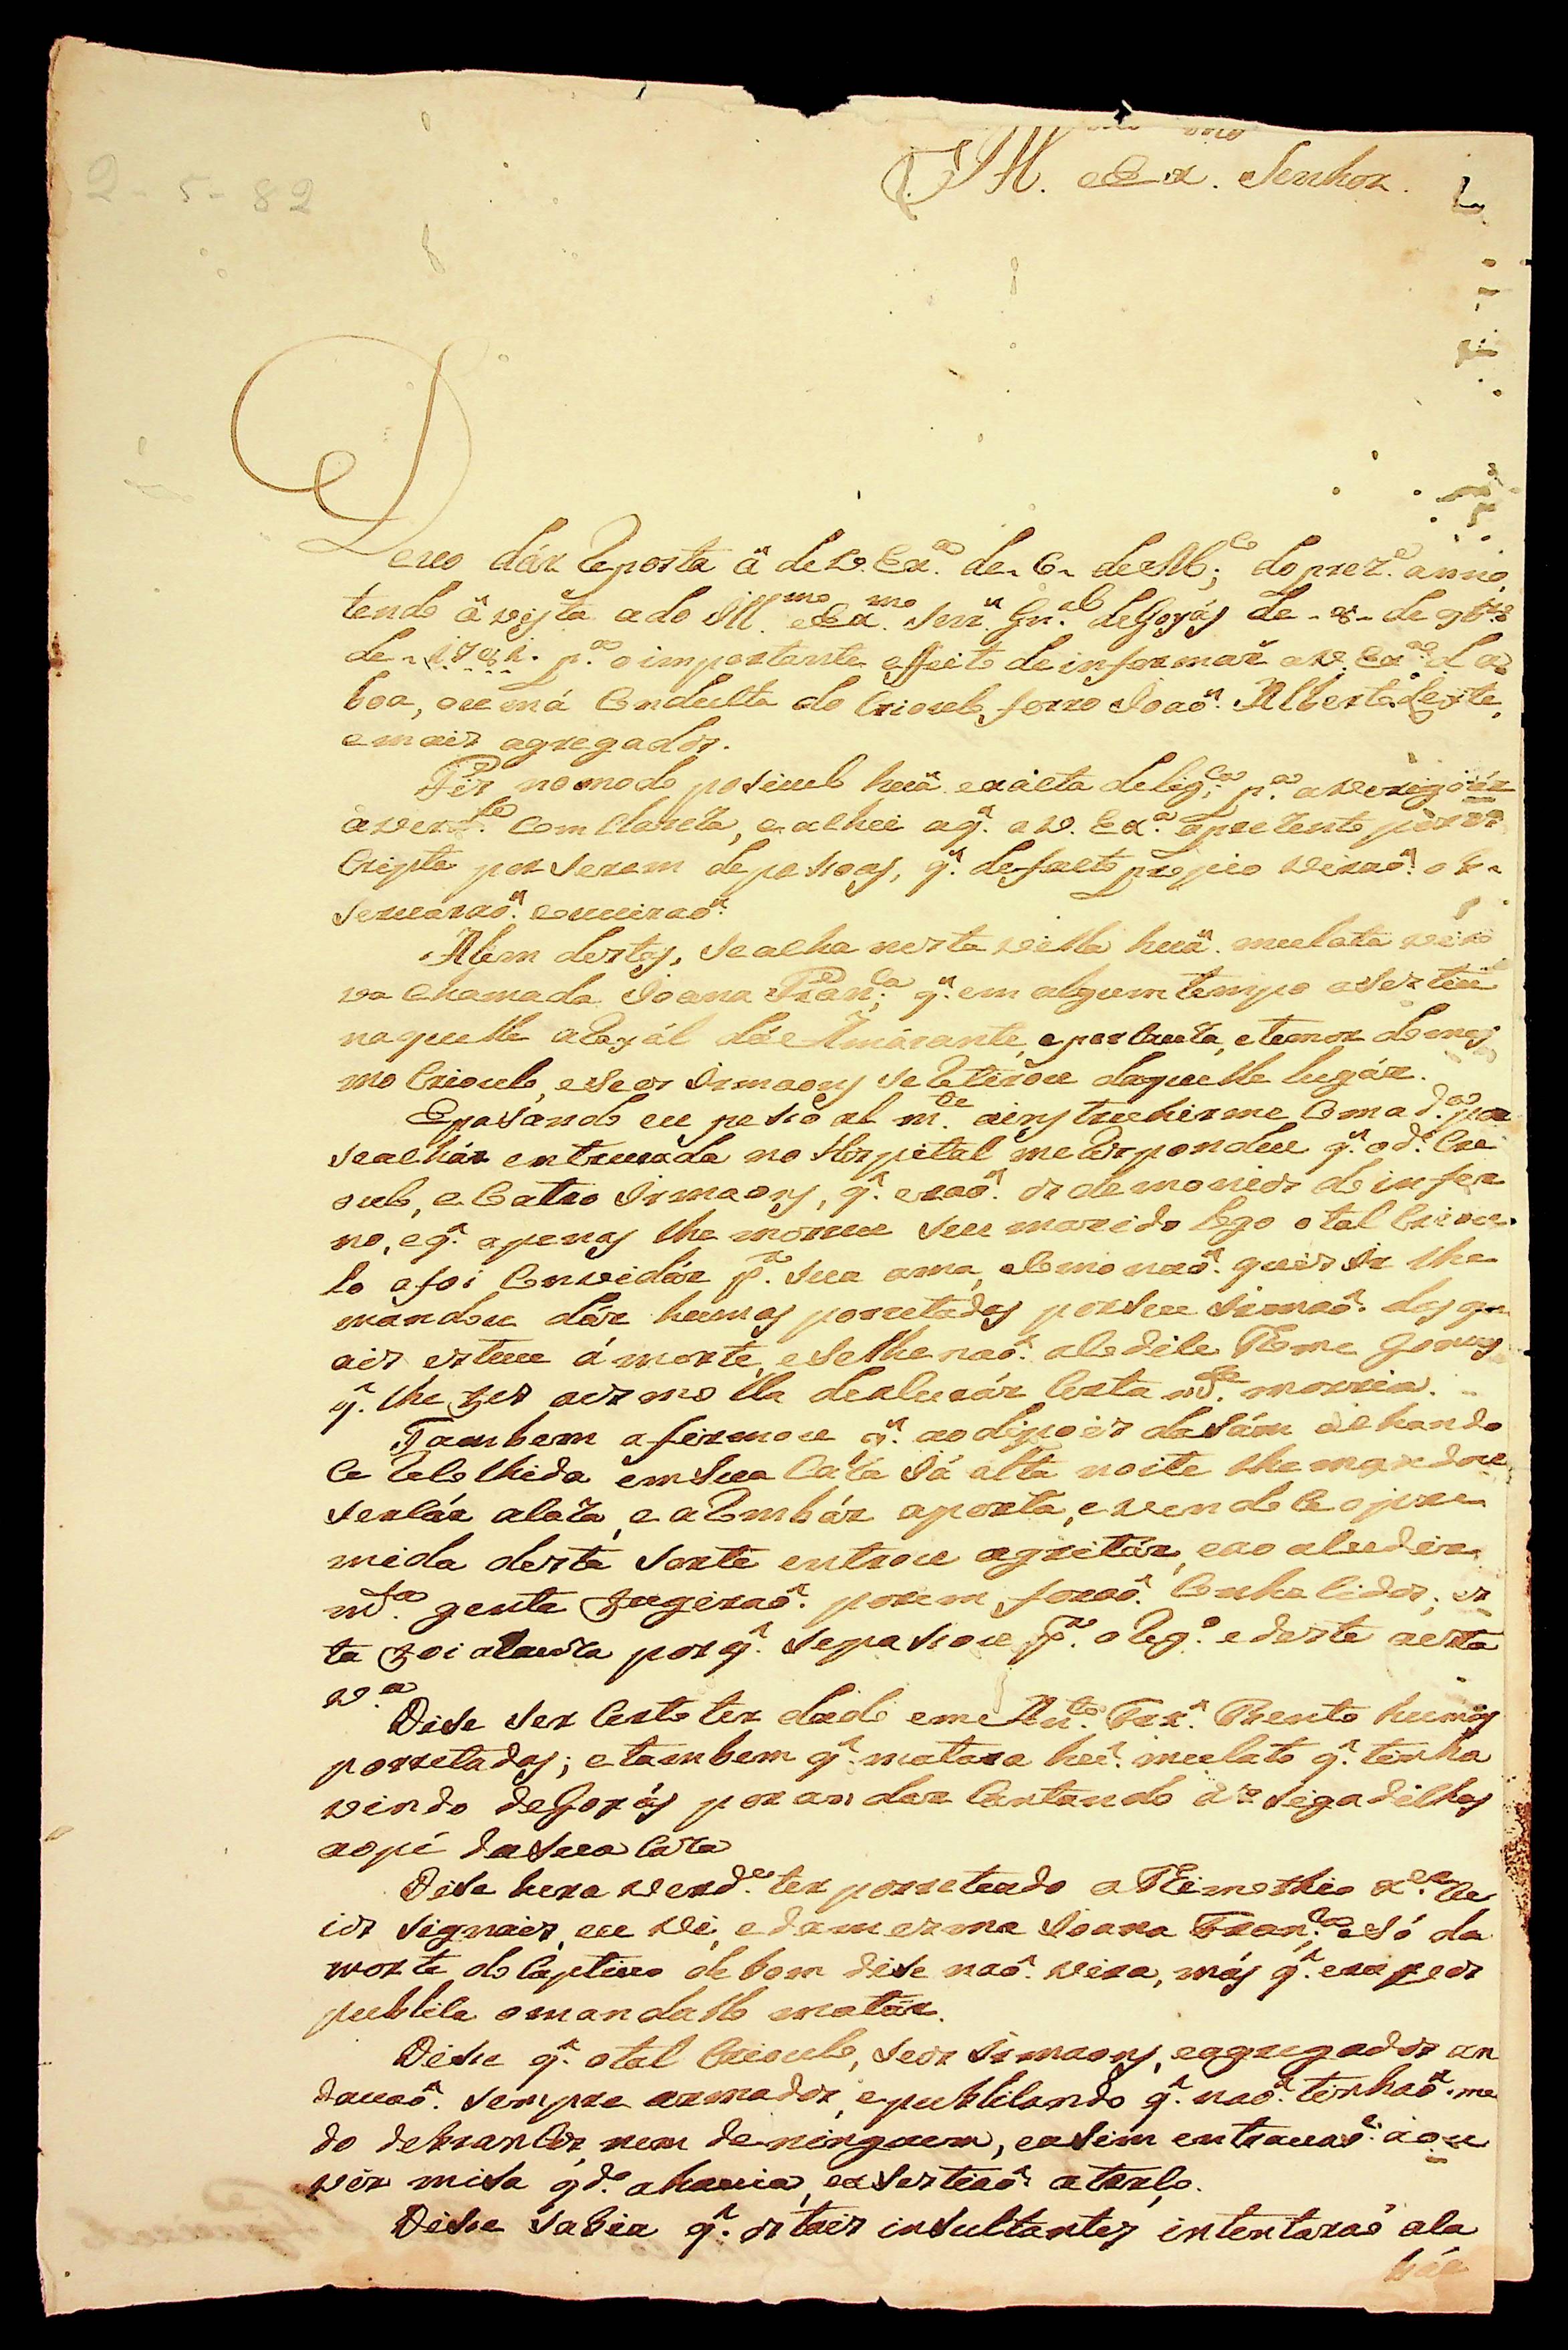 2-5-82
Ill.mo e Ex.mo Senhor.
Devo dár Reposta â de V. Ex.a de 6 de M.ço do prez.e anno,
tendo â vista a do Ill.mo e Ex.mo Senr̃. Gn.al de Goyás de 8 de 9br.o
de 1781. p.a o importante effeito de informar a V. Ex.a da
boa, ou má Conducta do Crioulo forro Joaõ Alberto Leyte,
e mais agregados.
Fis no modo posivel huã exácta delig.ca p.a averigoár
a verd.e com Clareza, e achei a q̃ a V. Ex.a aprezento por es
Cripto por serem de pesoas, q̃ de facto propio viraõ, ob
servaraõ e ouviraõ.
Alem destas, se acha nesta villa huã mulata viu
va chamada Joana Fran.ca q̃ em algum tempo asestiu
naquelle arayál do Amárante, e por Cauza, e temor do mes
mo Crioulo, e seos Irmaons se Retirou daquelle lugár.
E pasando eu pesoalm.te a instruhirme Com a d.a por
se achár entrevada no Hospital me Respondeu q̃ o d.o Cri
oulo, e Catro Irmaons, q̃ eraõ os demonios do infer
no, e q̃ apenas lhe morreu seu marido logo o tal Criou
lo a foi Convidár p.a sua ama, e Como naõ quis ir lhe
mandou dár humas porretadas por seu Irmaõ das qu
ais esteve á morte, e se lhe naõ acodice Thome Gomes
q̃ lhe fes a esmolla de a Curár Certam.te morria.
Tambem afirmou q̃ ao dipois de sám achando
Ce Recolhida em sua Caza já alta noite lhe mandou
sercár a Caza, e aRombár a porta, e vendoCe opre
mida desta sorte entrou a gritár, e ao acudir
m.ta gente fugiraõ porem foraõ Conhecidos; es
ta foi a Cauza porq̃ se pasou p.a o Reg.o e deste a esta
V.a
Dise ser Certo ter dado em Ant.o Frr.a Bento humas
porretadas; e tambem q̃ matara hũ mulato q̃ tinha
vindo de Goyás por andar Cantando as segadilhas
ao pé da sua Caza
Dise hera verd.e ter porreteado a Thimothio X.er Cu
ios signais, eu vi, e da mesma Joana Fran.ca e só da
morte do Captivo de bom dise naõ vira, más q̃ era vos
publica o mandallo matár.
Dise q̃ o tal Crioulo, seos Irmaons, e agregados an
davaõ sempre armados, e publicando q̃ naõ tinhaõ me
do de brancos, nem de ninguem, e asim entravaõ a ou
vir misa q.do a havia, e asestiaõ a terlo.
Dise sabia q̃ os tais insultantes intentaraõ aca
bár